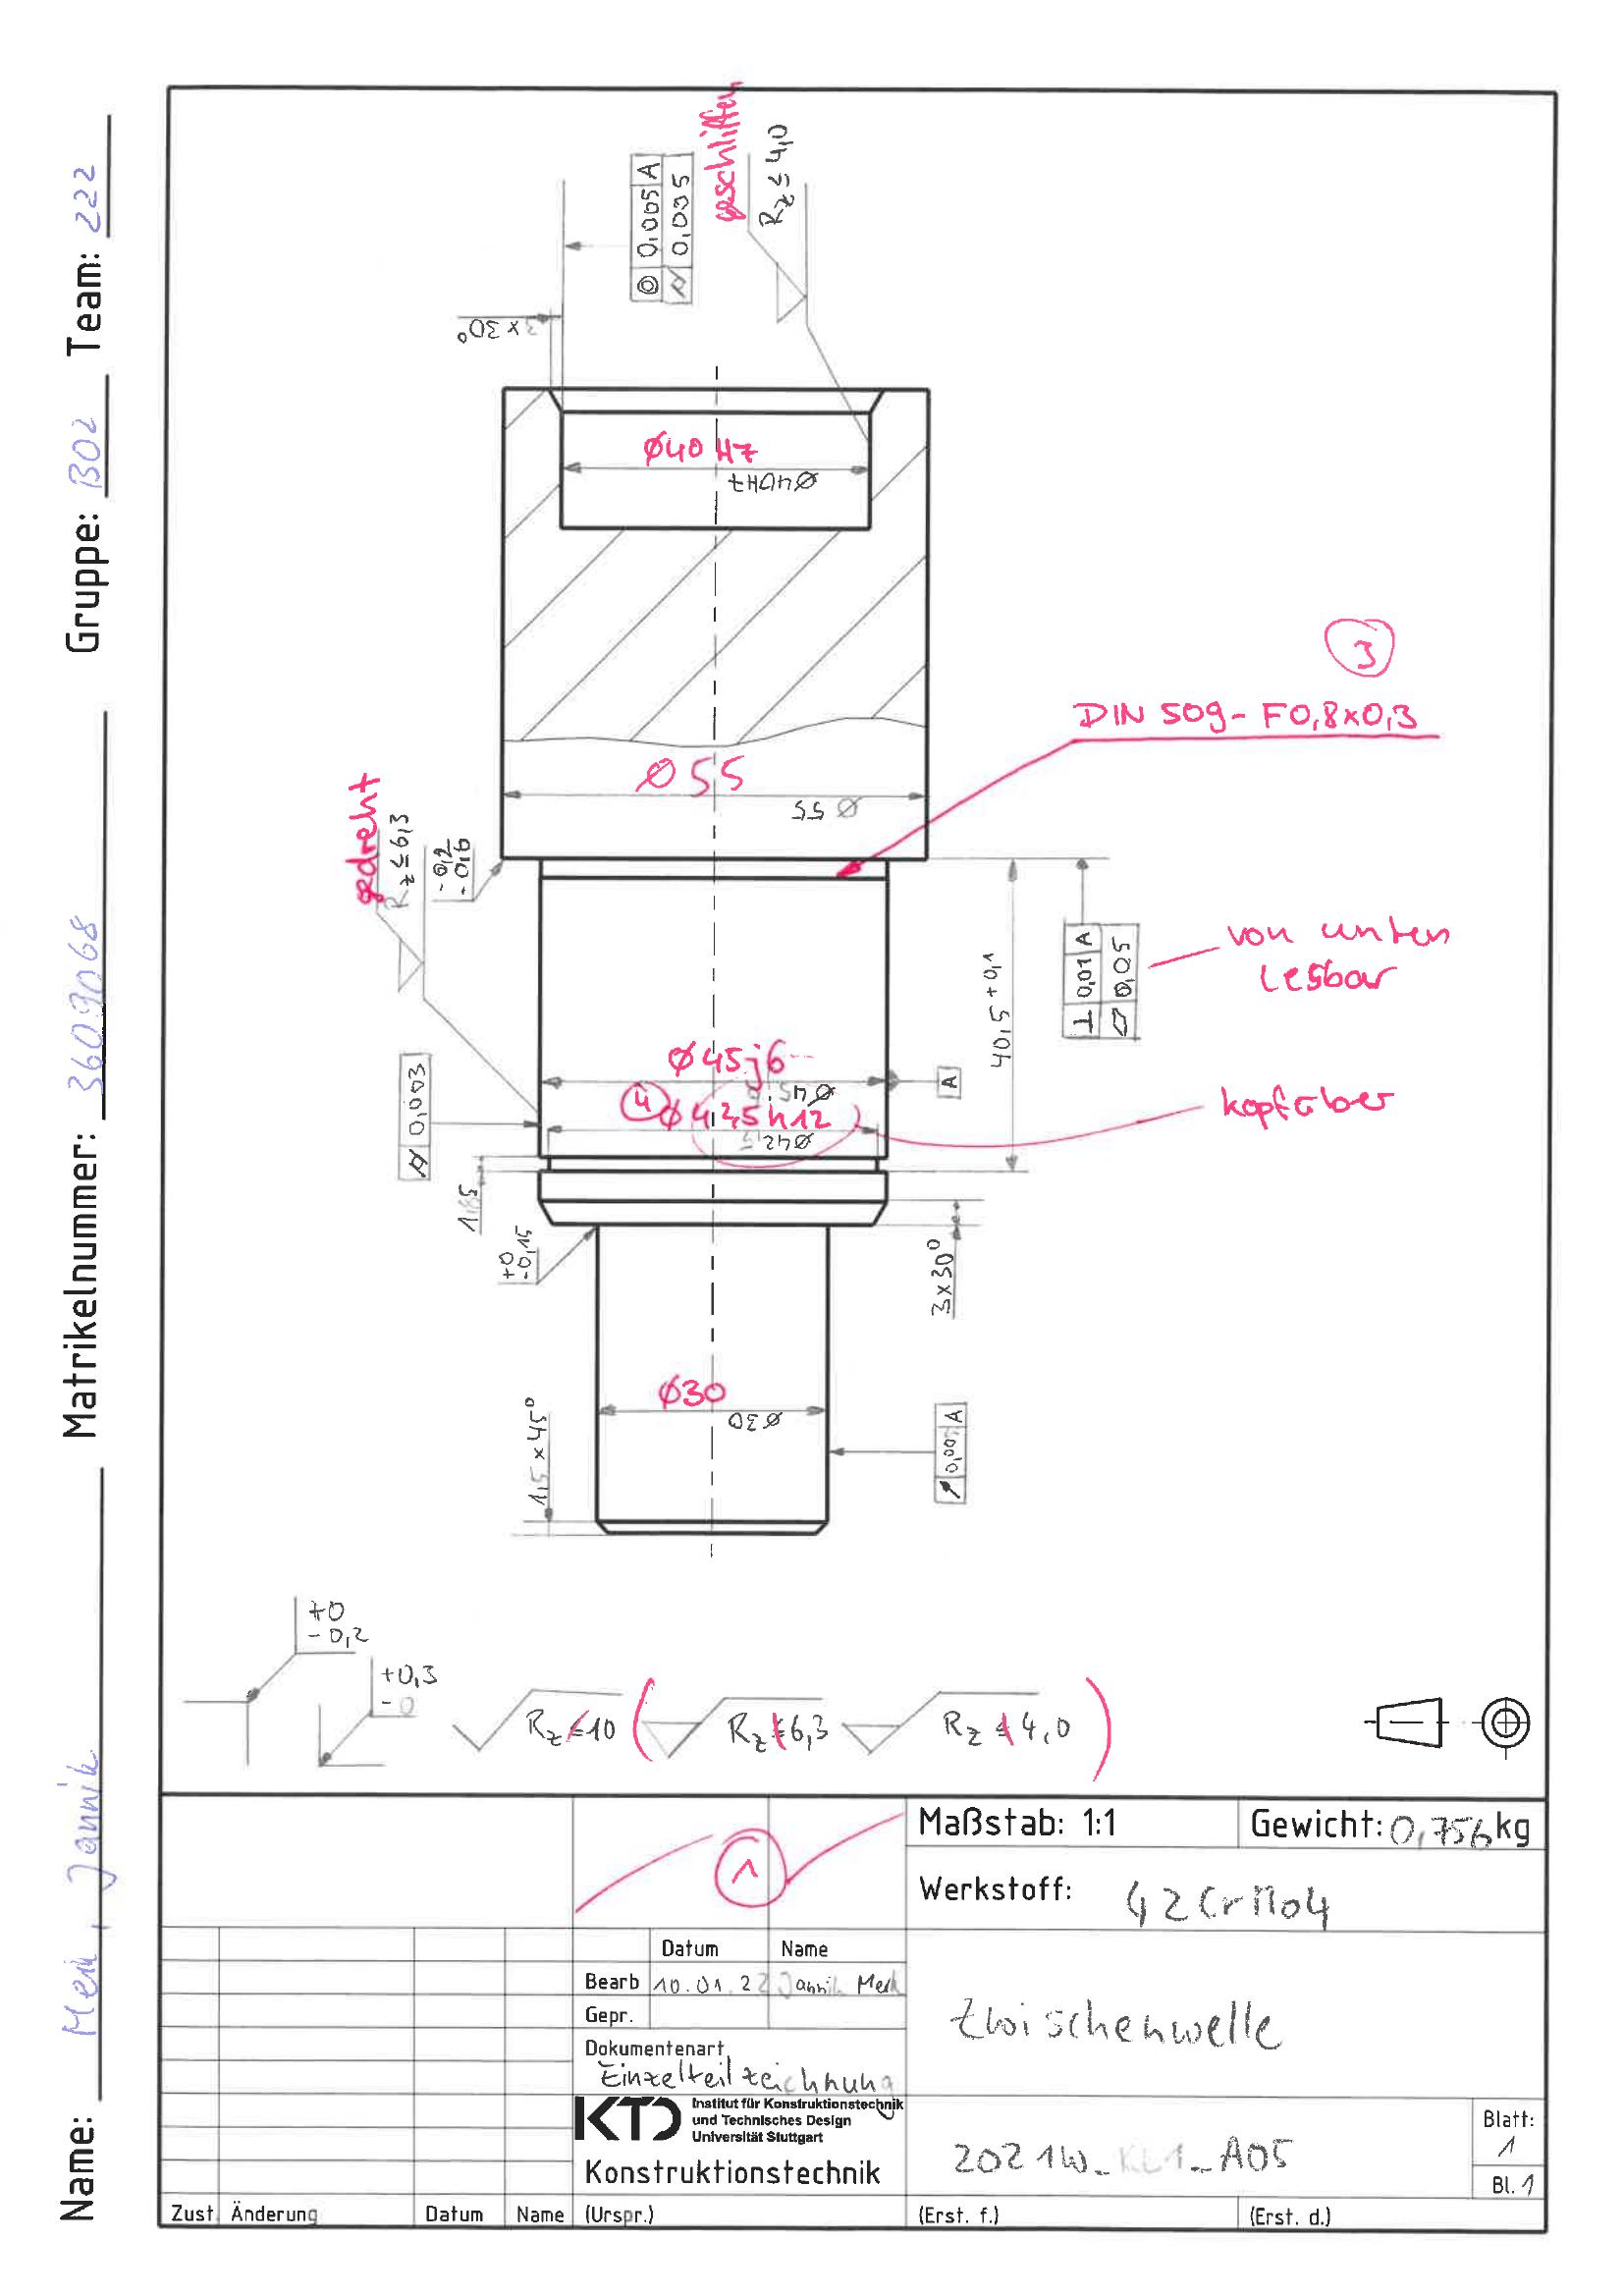 Name: Merk, Jannik Matrikelnummer: 3609068 Gruppe: B02 Team: 222
geschliffen
Rz ≤ 4,0
◎ 0,005 A
⌭ 0,005
3 x 30°
Ø40 H7
Ø40H7
3
DIN 509 - F0,8x0,3
Ø 55
Ø 55
gedreht
Rz ≤ 6,3
-0,2
-0,6
⊥ 0,01 A
⏥ 0,05
von unten
lesbar
40,5 +0,1
Ø45j6
A
⌭ 0,003
4
Ø42,5 h12
Ø42,5
kopfüber
1,85
+0
-0,15
3x30°
Ø30
Ø30
1,5 x 45°
+0
-0,2
+0,3
-0
Rz ≤ 10 ( Rz ≤ 6,3 Rz ≤ 4,0 )
1
Maßstab: 1:1
Gewicht: 0,756 kg
Werkstoff: 42CrMo4
Datum Name
Bearb 10.01.22 Jannik Merk
Gepr.
Dokumentenart
Einzelteilzeichnung
Zwischenwelle
KTD
Institut für Konstruktionstechnik
und Technisches Design
Universität Stuttgart
Konstruktionstechnik
2021W_KL1_A05
Blatt:
1
Bl. 1
Zust. Änderung Datum Name (Urspr.) (Erst. f.) (Erst. d.)